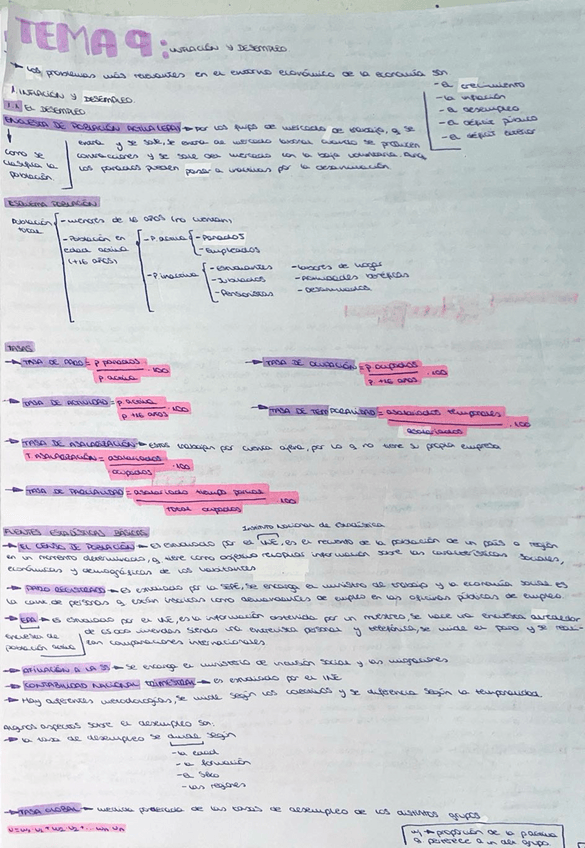 TEMA 9: INFLACIÓN Y DESEMPLEO
→ Los problemas más relevantes en el entorno económico de la economía son
- El crecimiento
- La inflación
- El desempleo
- El déficit público
- El déficit exterior
1. INFLACIÓN Y DESEMPLEO
1.1 EL DESEMPLEO
ENCUESTA DE POBLACIÓN ACTIVA (EPA) → por los flujos de mercado de trabajo, q se
entra y se sale, se entra de mercado laboral cuando se producen
contrataciones y se sale del mercado con la baja voluntaria
los parados pueden pasar a inactivos por la desanimación
como se
clasifica la
población
ESQUEMA POBLACIÓN
Población
total
- menores de 16 años (no cuentan)
- Población en
edad activa
(+16 años)
- P. activa
- Parados
- Empleados
- P. inactiva
- Estudiantes
- Jubilados
- Pensionistas
- labores de hogar
- benéficas
- desanimados
TASAS
→ TASA DE PARO = P parados / P. activa · 100
→ TASA DE OCUPACIÓN = P ocupados / P +16 años · 100
→ TASA DE ACTIVIDAD = P activa / P +16 años · 100
→ TASA DE TEMPORALIDAD = asalariados temporales / asalariados · 100
→ TASA DE ASALARIZACIÓN → estos trabajan por cuenta ajena, por lo q no tiene su propia empresa
T. ASALARIZACIÓN = asalariados / ocupados · 100
→ TASA DE PARCIALIDAD = asalariado tiempo parcial / Total ocupados · 100
FUENTES ESTADÍSTICAS BÁSICAS
Instituto Nacional de Estadística
→ EL CENSO DE POBLACIÓN → es elaborado por el INE, es el recuento de la población de un país o región
en un momento determinado, q tiene como objetivo recopilar información sobre las características sociales,
económicas y demográficas de los habitantes
→ PARO REGISTRADO → es elaborado por la SEPE, se encarga el ministro de trabajo y la economía social es
la suma de personas q están inscritas como demandantes de empleo en las oficinas públicas de empleo
→ EPA → es elaborado por el INE, es la información obtenida por un muestreo, se hace una encuesta alrededor
de 65.000 viviendas siendo una entrevista personal y telefónica, se mide el paro y se
comparaciones internacionales.
encuesta de
población activa
→ AFILIACIÓN A LA SS → se encarga el ministerio de inclusión social y las migraciones
→ CONTABILIDAD NACIONAL TRIMESTRAL → es elaborado por el INE
→ Hay diferentes metodologías, se mide según los colectivos y se diferencia según la temporalidad.
Algunos aspectos sobre el desempleo son:
→ la tasa de desempleo se divide según
- la edad
- la formación
- el sexo
- las regiones
→ TASA GLOBAL → media ponderada de las tasas de desempleo de los distintos grupos
wj → proporción de la p. activa
q pertenece a un dado grupo